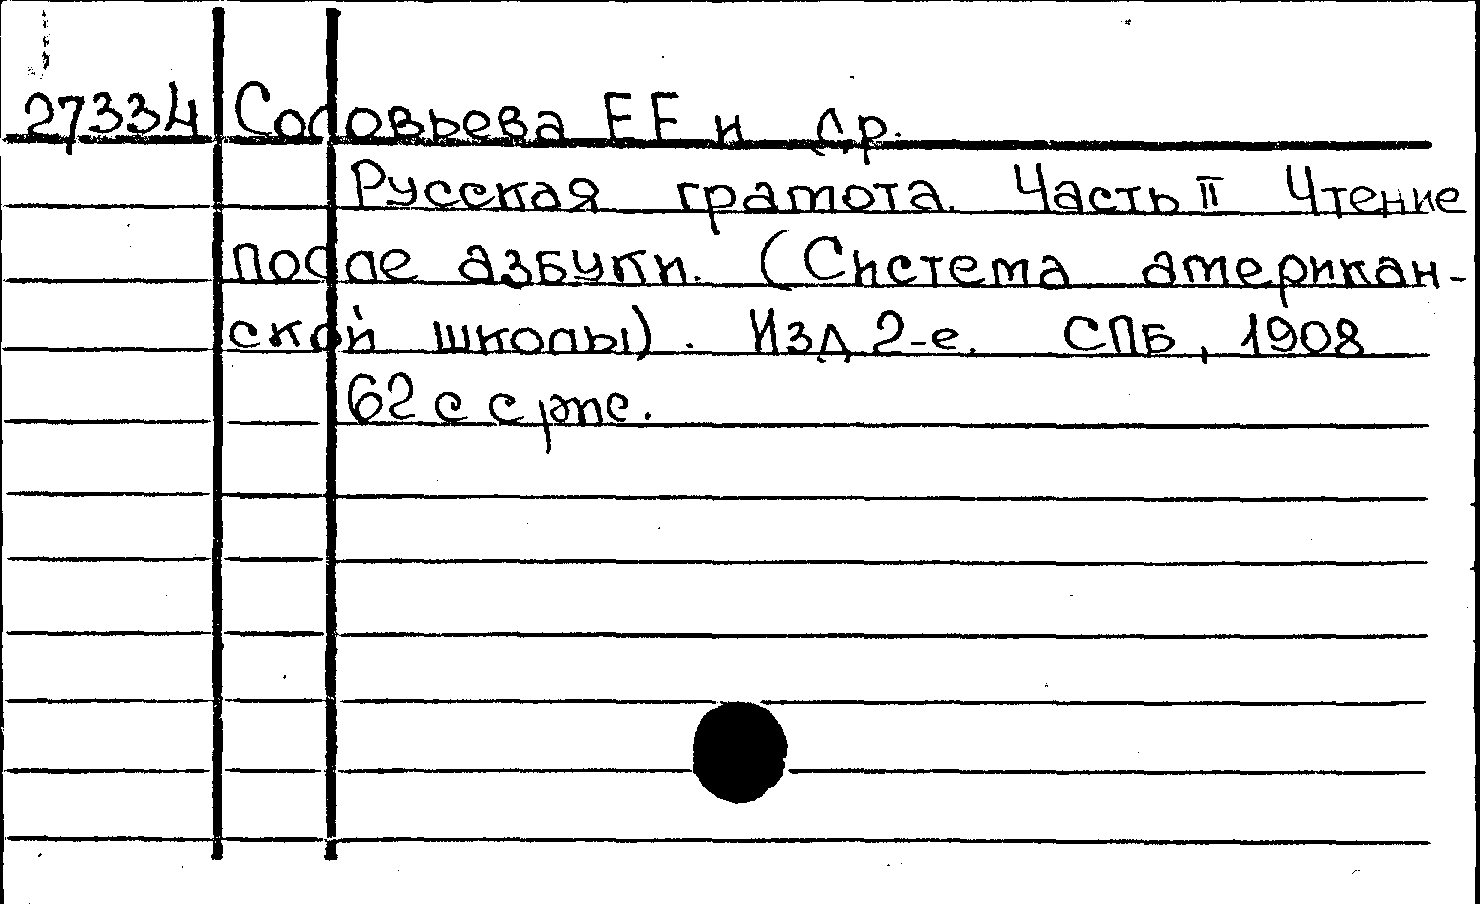 27334 Соловьева Е Е и др.
Русская грамота. Часть II Чтение
после азбуки. (Система американ-
ской школы). Изд 2-е. СПБ, 1908
62 с с рис.